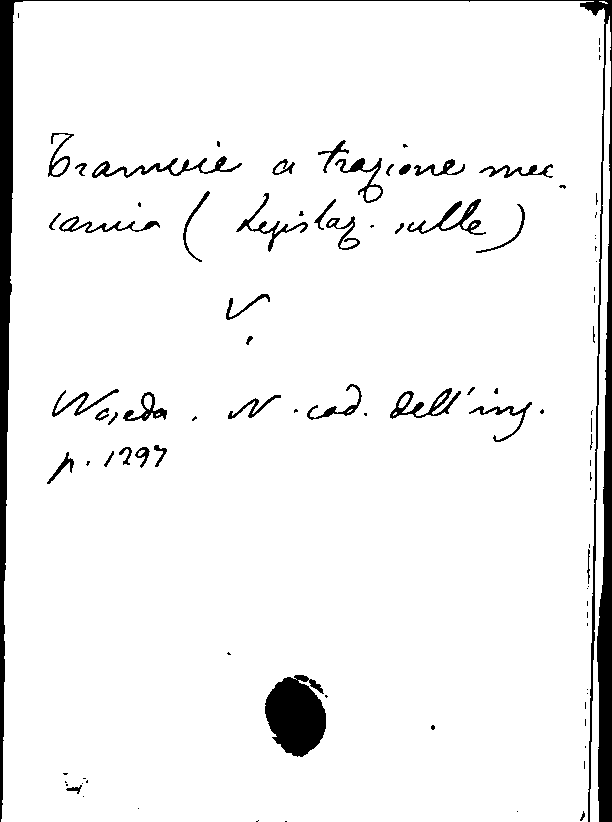 Tramvie a trazione mec-
canica (Legislaz. sulle)
V.
Noseda. N. cod. dell'ing.
p. 1297